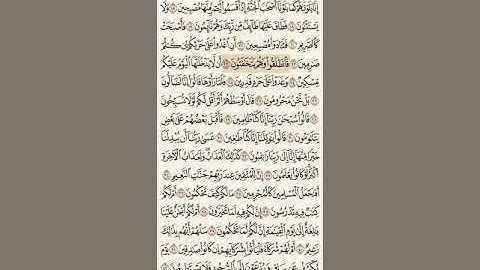 إِنَّا بَلَوْنَٰهُمْ كَمَا بَلَوْنَآ أَصْحَٰبَ ٱلْجَنَّةِ إِذْ أَقْسَمُوا۟ لَيَصْرِمُنَّهَا مُصْبِحِينَ ١٧ وَلَا
يَسْتَثْنُونَ ١٨ فَطَافَ عَلَيْهَا طَآئِفٌ مِّن رَّبِّكَ وَهُمْ نَآئِمُونَ ١٩ فَأَصْبَحَتْ
كَٱلصَّرِيمِ ٢٠ فَتَنَادَوْا۟ مُصْبِحِينَ ٢١ أَنِ ٱغْدُوا۟ عَلَىٰ حَرْثِكُمْ إِن كُنتُمْ
صَٰرِمِينَ ٢٢ فَٱنطَلَقُوا۟ وَهُمْ يَتَخَٰفَتُونَ ٢٣ أَن لَّا يَدْخُلَنَّهَا ٱلْيَوْمَ عَلَيْكُم
مِّسْكِينٌ ٢٤ وَغَدَوْا۟ عَلَىٰ حَرْدٍ قَٰدِرِينَ ٢٥ فَلَمَّا رَأَوْهَا قَالُوٓا۟ إِنَّا لَضَآلُّونَ
٢٦ بَلْ نَحْنُ مَحْرُومُونَ ٢٧ قَالَ أَوْسَطُهُمْ أَلَمْ أَقُل لَّكُمْ لَوْلَا تُسَبِّحُونَ
٢٨ قَالُوا۟ سُبْحَٰنَ رَبِّنَآ إِنَّا كُنَّا ظَٰلِمِينَ ٢٩ فَأَقْبَلَ بَعْضُهُمْ عَلَىٰ بَعْضٍ
يَتَلَٰوَمُونَ ٣٠ قَالُوا۟ يَٰوَيْلَنَآ إِنَّا كُنَّا طَٰغِينَ ٣١ عَسَىٰ رَبُّنَآ أَن يُبْدِلَنَا
خَيْرًا مِّنْهَآ إِنَّآ إِلَىٰ رَبِّنَا رَٰغِبُونَ ٣٢ كَذَٰلِكَ ٱلْعَذَابُ وَلَعَذَابُ ٱلْءَاخِرَةِ
أَكْبَرُ لَوْ كَانُوا۟ يَعْلَمُونَ ٣٣ إِنَّ لِلْمُتَّقِينَ عِندَ رَبِّهِمْ جَنَّٰتِ ٱلنَّعِيمِ ٣٤
أَفَنَجْعَلُ ٱلْمُسْلِمِينَ كَٱلْمُجْرِمِينَ ٣٥ مَا لَكُمْ كَيْفَ تَحْكُمُونَ ٣٦ أَمْ لَكُمْ
كِتَٰبٌ فِيهِ تَدْرُسُونَ ٣٧ إِنَّ لَكُمْ فِيهِ لَمَا تَخَيَّرُونَ ٣٨ أَمْ لَكُمْ أَيْمَٰنٌ عَلَيْنَا
بَٰلِغَةٌ إِلَىٰ يَوْمِ ٱلْقِيَٰمَةِ إِنَّ لَكُمْ لَمَا تَحْكُمُونَ ٣٩ سَلْهُمْ أَيُّهُم بِذَٰلِكَ
زَعِيمٌ ٤٠ أَمْ لَهُمْ شُرَكَآءُ فَلْيَأْتُوا۟ بِشُرَكَآئِهِمْ إِن كَانُوا۟ صَٰدِقِينَ ٤١
يَوْمَ يُكْشَفُ عَن سَاقٍ وَيُدْعَوْنَ إِلَى ٱلسُّجُودِ فَلَا يَسْتَطِيعُونَ ٤٢